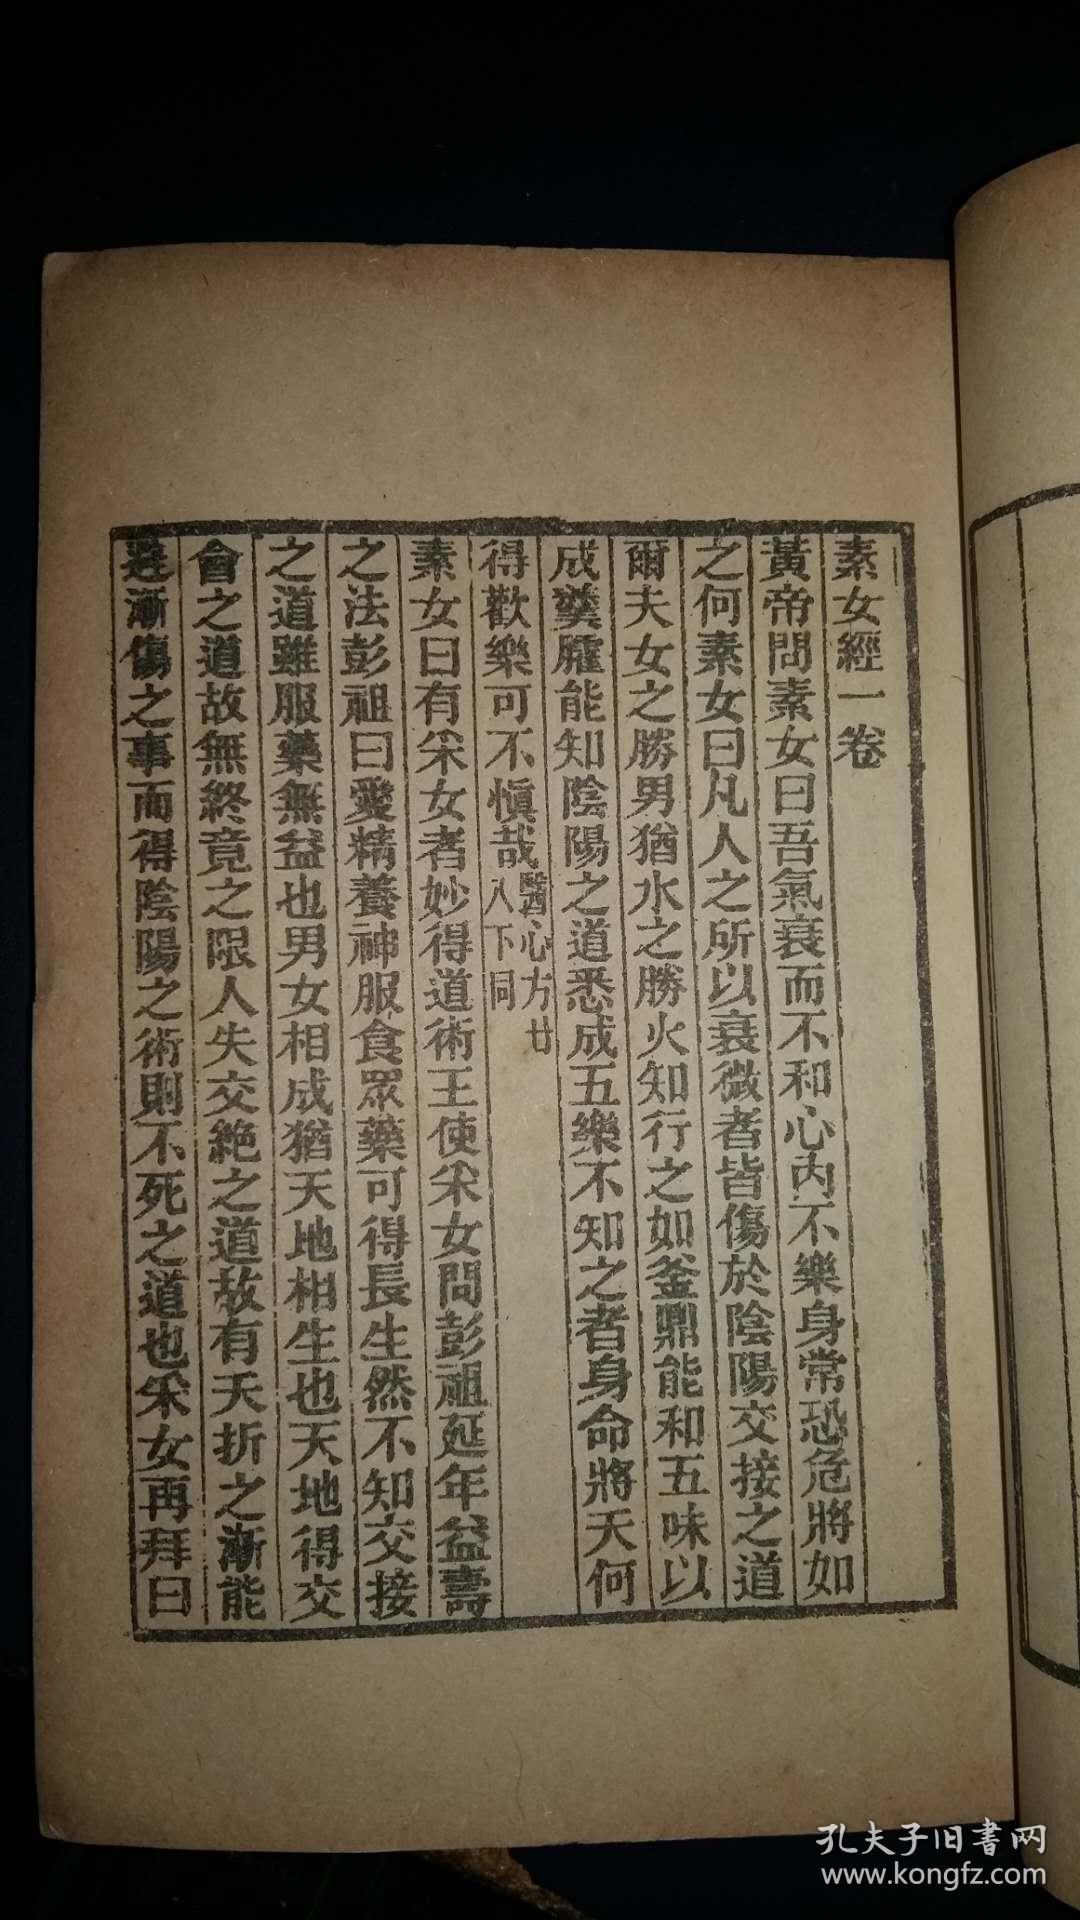 素女經一卷
黃帝問素女曰吾氣衰而不和心內不樂身常恐危將如
之何素女曰凡人之所以衰微者皆傷於陰陽交接之道
爾夫女之勝男猶水之勝火知行之如釜鼎能和五味以
成羹臛能知陰陽之道悉成五樂不知之者身命將夭何
得歡樂可不慎哉醫心方廿八下同
素女曰有采女者妙得道術王使采女問彭祖延年益壽
之法彭祖曰愛精養神服食眾藥可得長生然不知交接
之道雖服藥無益也男女相成猶天地相生也天地得交
會之道故無終竟之限人失交絶之道故有夭折之漸能
避漸傷之事而得陰陽之術則不死之道也采女再拜曰
孔夫子旧書网
www.kongfz.com